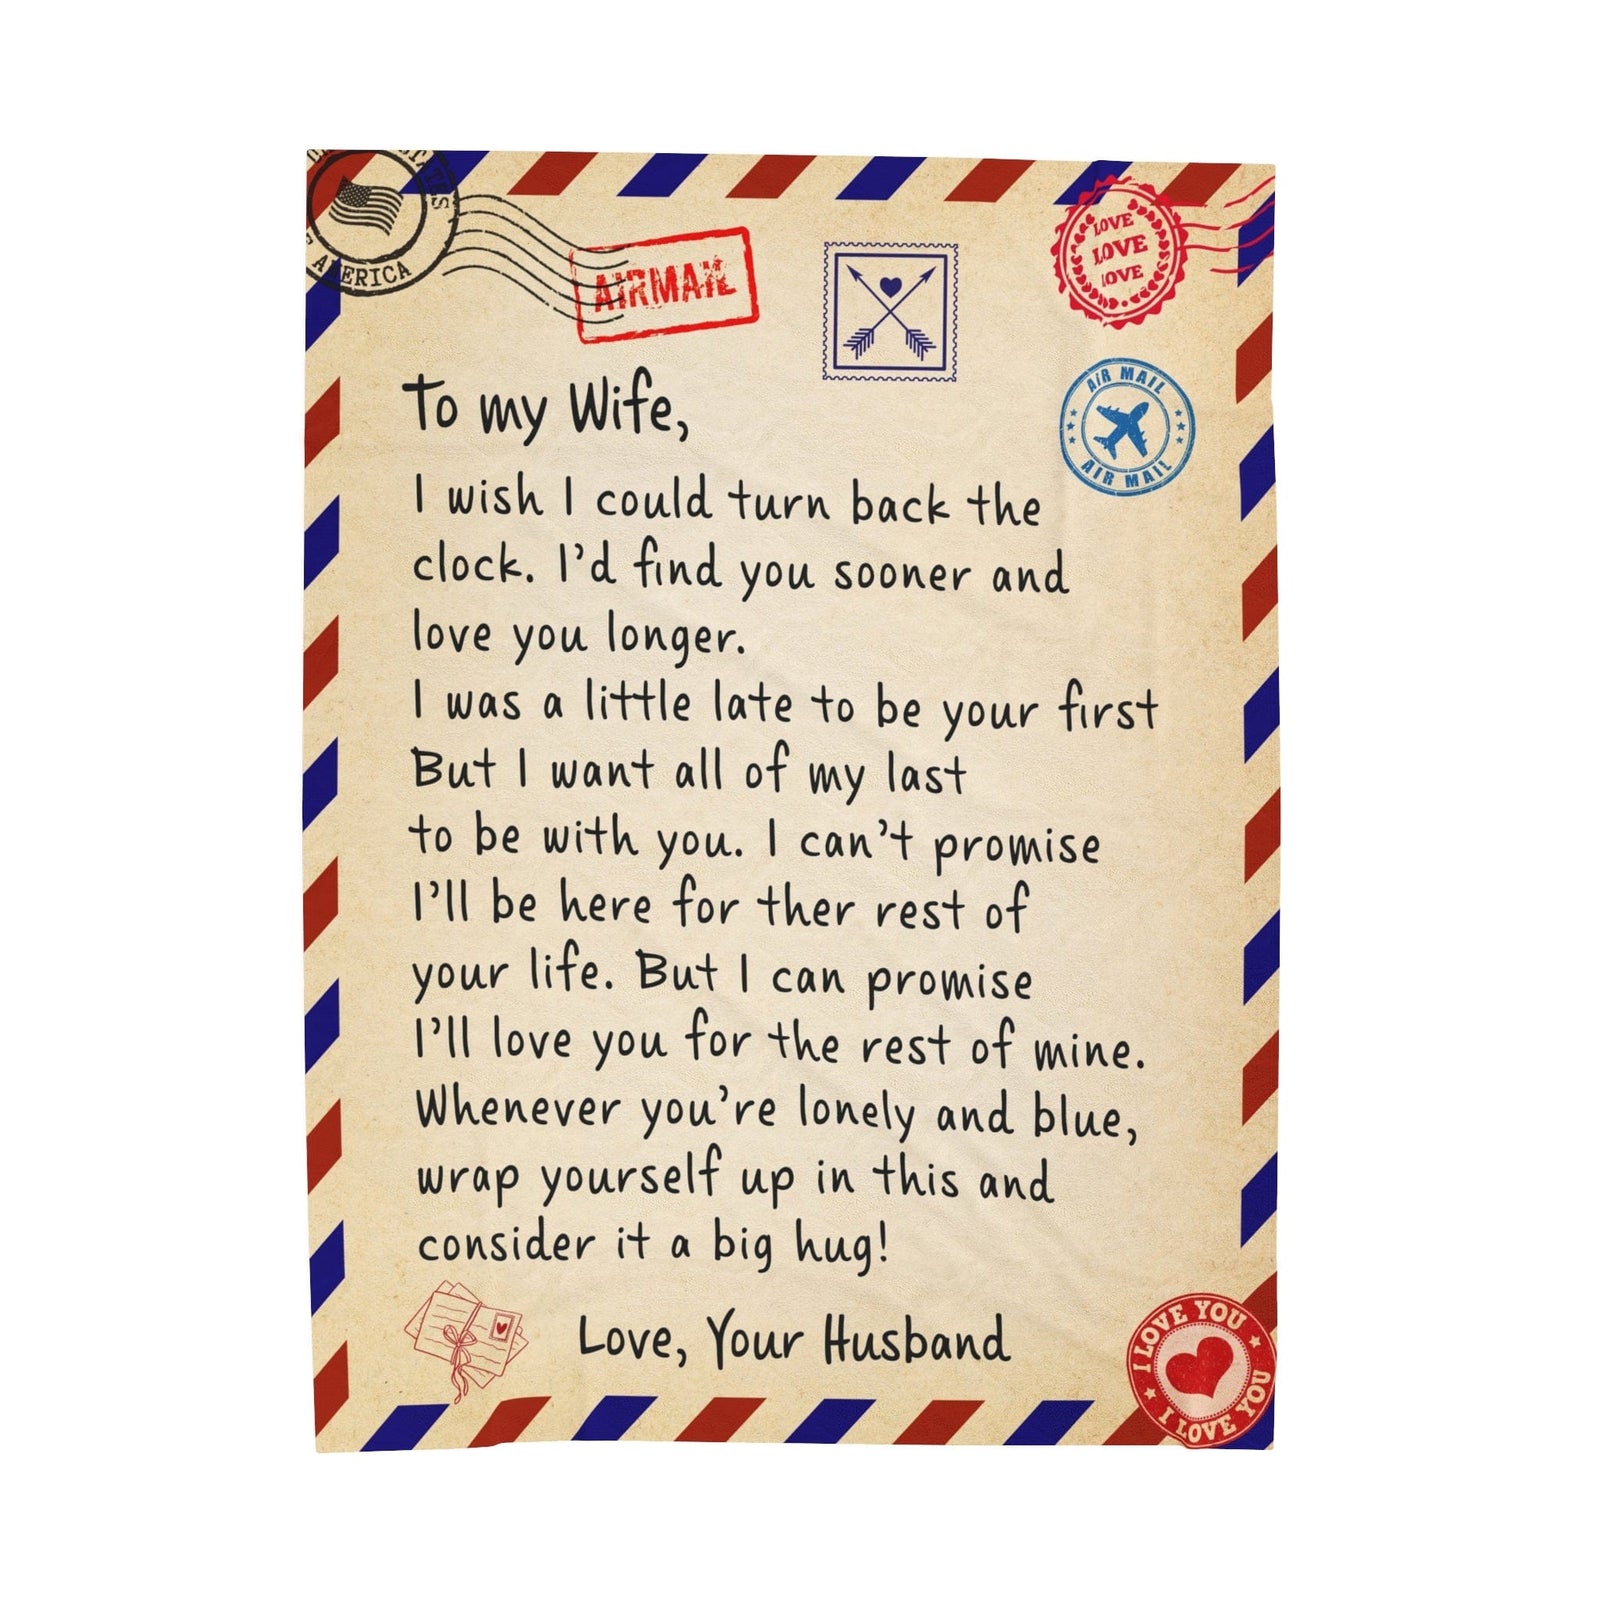 STATES
AMERICA
AIRMAIL
LOVE
LOVE
LOVE
AIR MAIL
AIR MAIL
To my Wife,
I wish I could turn back the
clock. I'd find you sooner and
love you longer.
I was a little late to be your first
But I want all of my last
to be with you. I can't promise
I'll be here for ther rest of
your life. But I can promise
I'll love you for the rest of mine.
Whenever you're lonely and blue,
wrap yourself up in this and
consider it a big hug!
Love, Your Husband
I LOVE YOU
I LOVE YOU